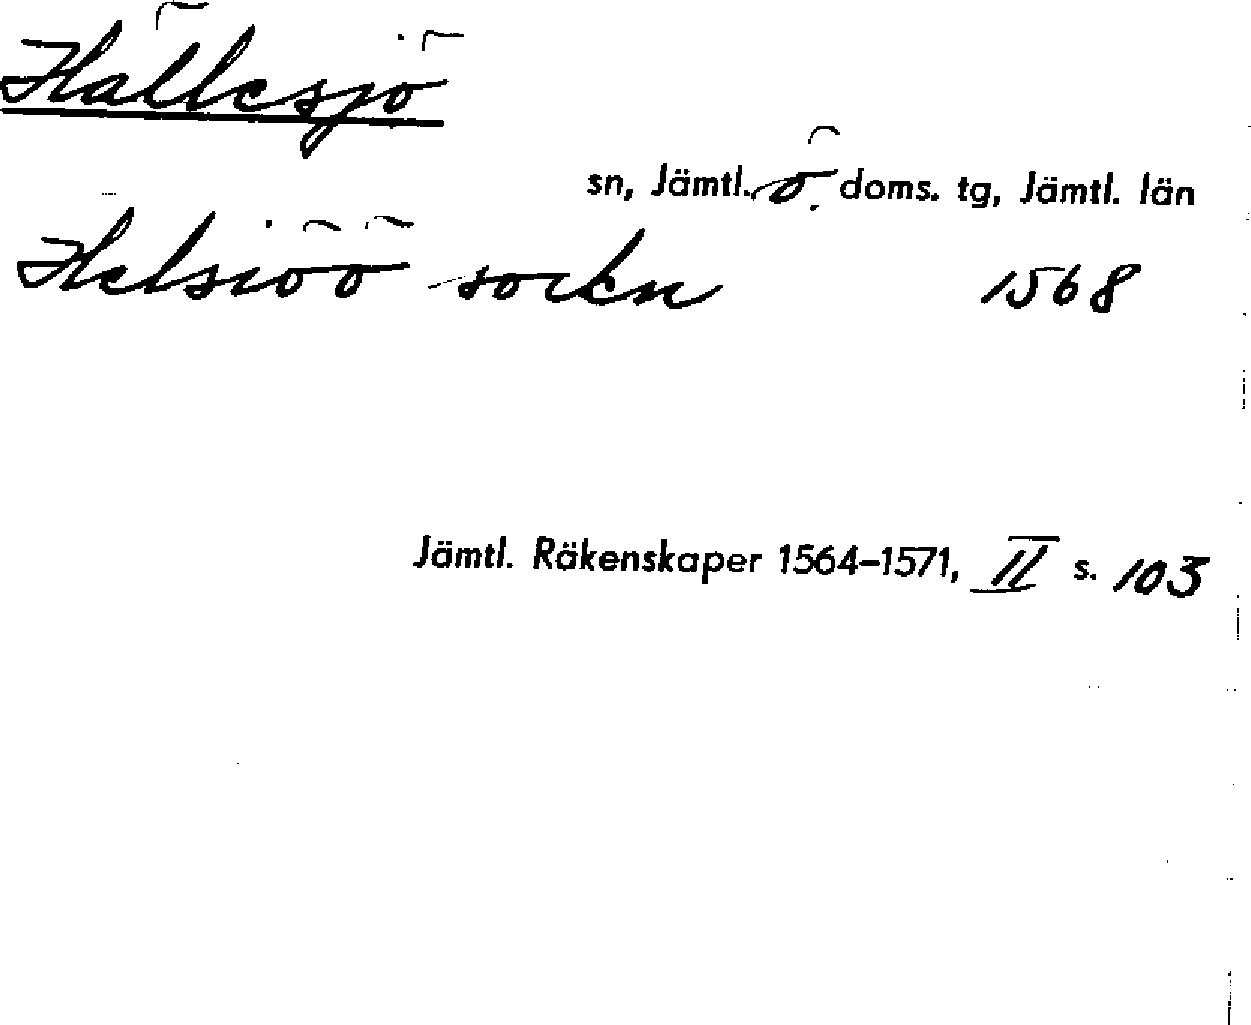 Hällesjö
sn, Jämtl. ö. doms. tg, Jämtl. län
Helsiöö sockn 1568
Jämtl. Räkenskaper 1564–1571, II s. 103